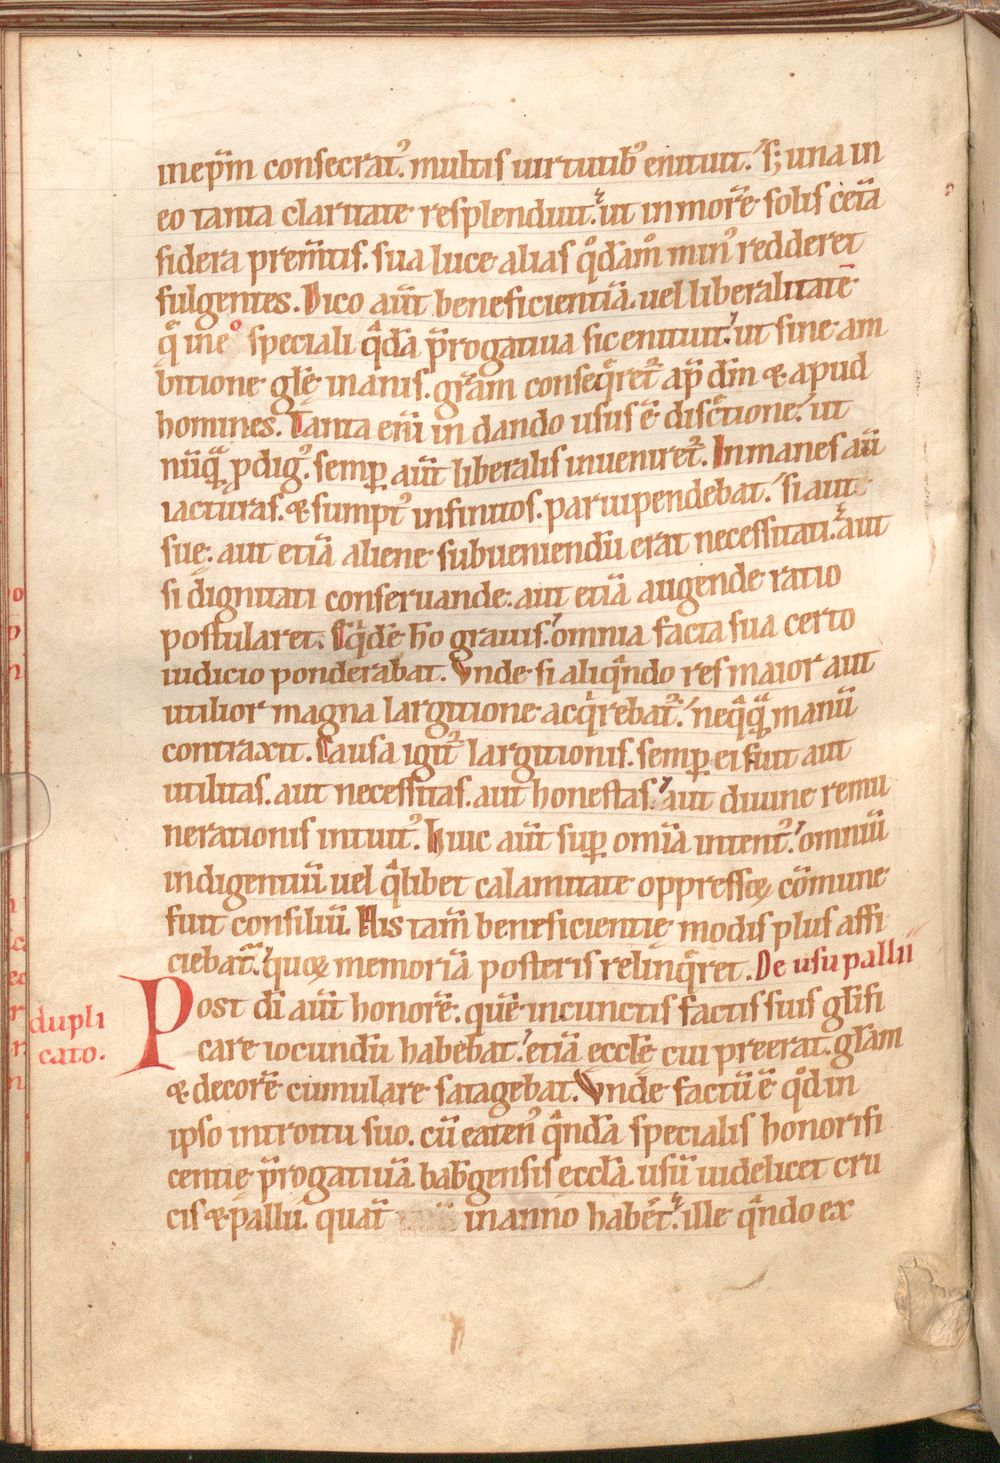 inep̄m consecrat᷒. multis uirtutib᷒ enituit. S; una in
eo tanta claritate resplenduit. ut in more᷒ solis cet̄a
sidera prem̄tis. sua luce alias qͦdam̊ min᷒ redderet
fulgentes. Dico aut̄ beneficientiā. uel liberalitatē
q̄ in eo speciali qͣdā p̄rogatiua sic enituit. ut sine am
bitione gl̄e inanis. gr̄am conseq̄ret᷒ ap̄ dm̄ & apud
homines. Tanta eni᷒ in dando usus ē discͣtione. ut
nūqͣ ꝓdig᷒. semꝑ aut̄ liberalis inueniret᷒. Inmanes aū
iacturas. & sumpt᷒ infinitos. paruipendebat. si aut
sue. aut etiā aliene subueniendū erat necessitati. aut
si dignitati conseruande. aut etiā augende ratio
postularet. Sqͥdē h̄o grauis. omnia facta sua certo
iudicio ponderabat. Vnde si aliqͣndo res maior aut
utilior magna largitione acqͥrebat᷒. neqͣqͣ manū
contraxit. Causa igit᷒ largitionis. semꝑ ei fuit aut
utilitas. aut necessitas. aut honestas. aut diuine remu
nerationis intuit᷒. Huic aut̄ suꝑ om̄ia intent᷒. omniū
indigentiū. uel qͣlibet calamitate oppressoꝝ cōmune
fuit consiliū. His tam̄ beneficientie modis plus affi
ciebat᷒. quoꝝ memoriā posteris relinq̄ret. De usu pallii
dupli
cato.
Post dī aut̄ honorē. quē in cunctis factis suis gl̄ifi
care iocundū habebat. etiā eccl̄e cui preerat. gl̄am
& decorē cumulare satagebat. Vnde factū ē qͦd in
ipso introitu suo. cū eaten᷒ qͣndā specialis honorifi
centie p̄rogatiuā bab̄gensis eccl̄a. usū uidelicet cru
cis & pallii. quat̄ in anno habēt. ille qͣndo ex